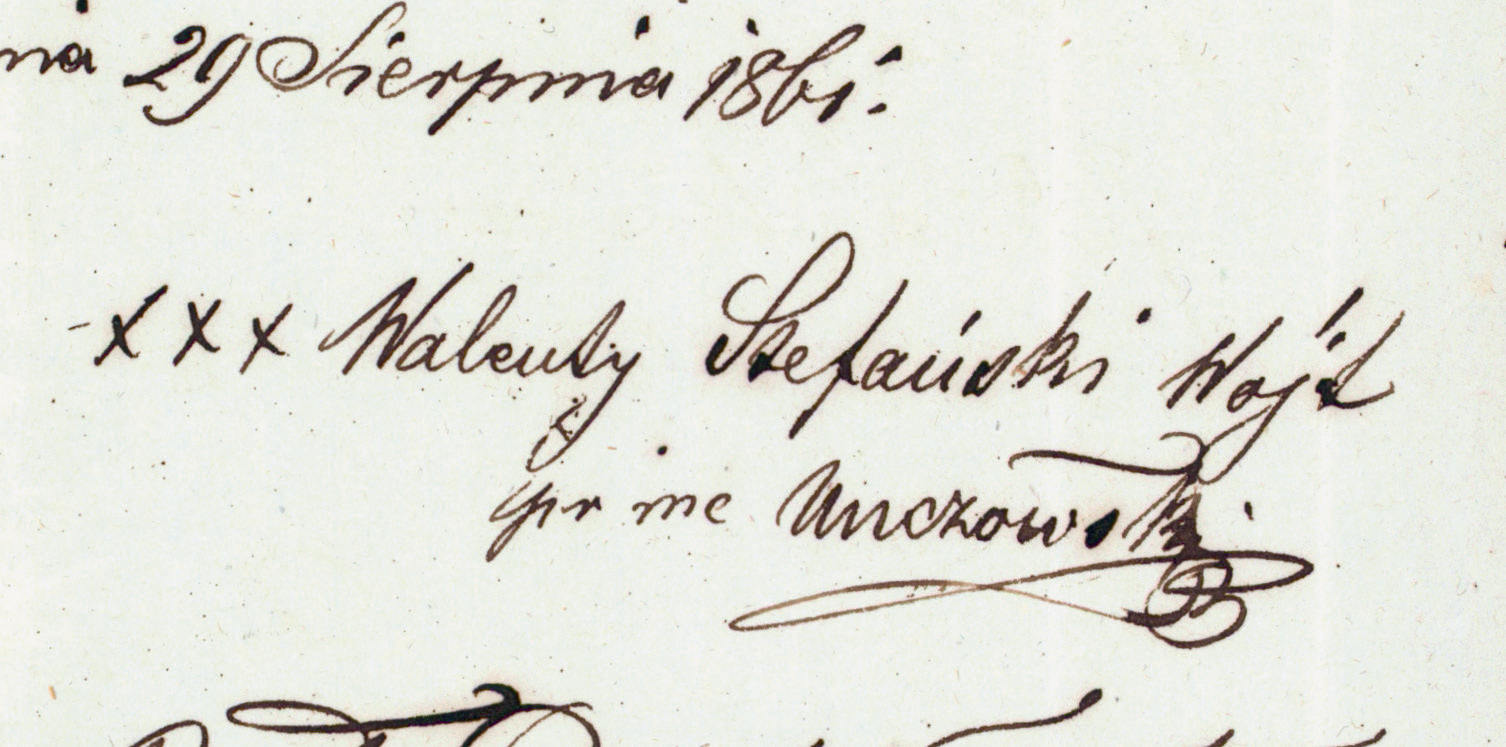 29 Sierpnia 1861.
x x x Walenty Stefański Wójt
pr me Unczowski